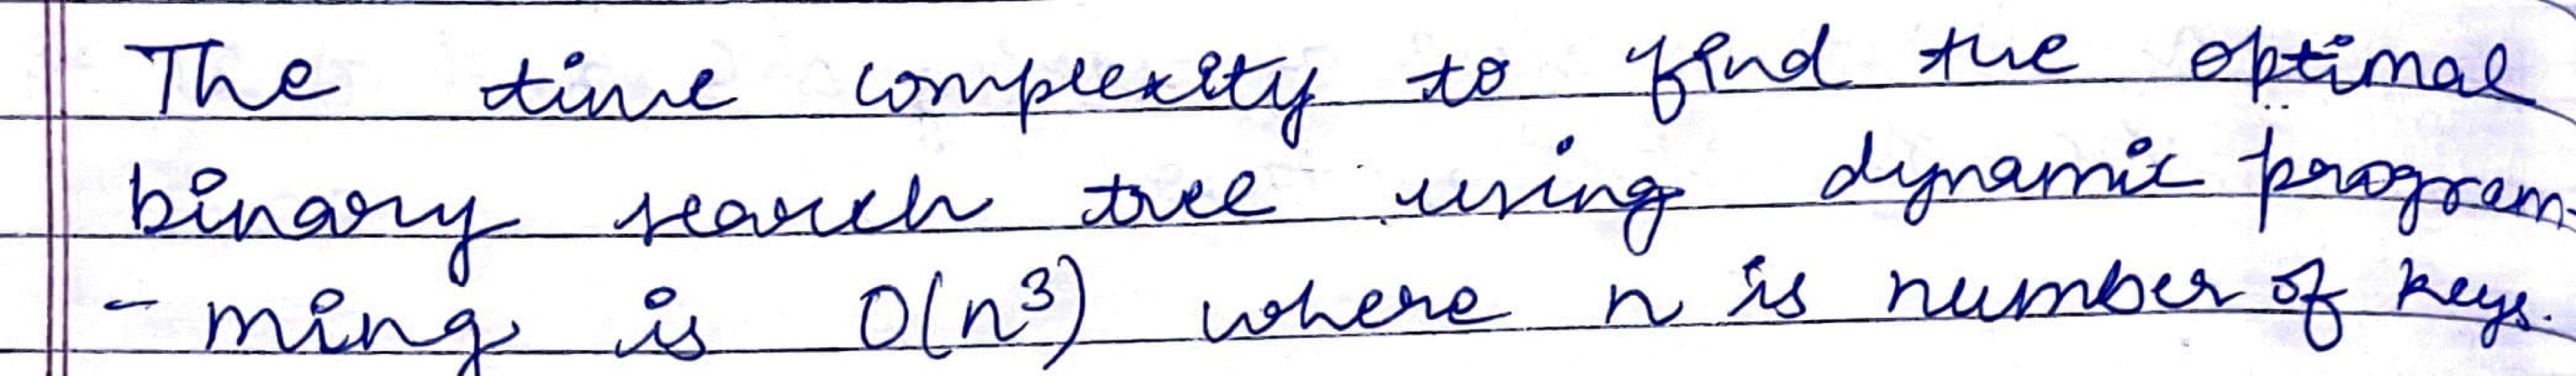 The time complexity to find the optimal
binary search tree using dynamic program-
- ming is O(n³) where n is number of keys.